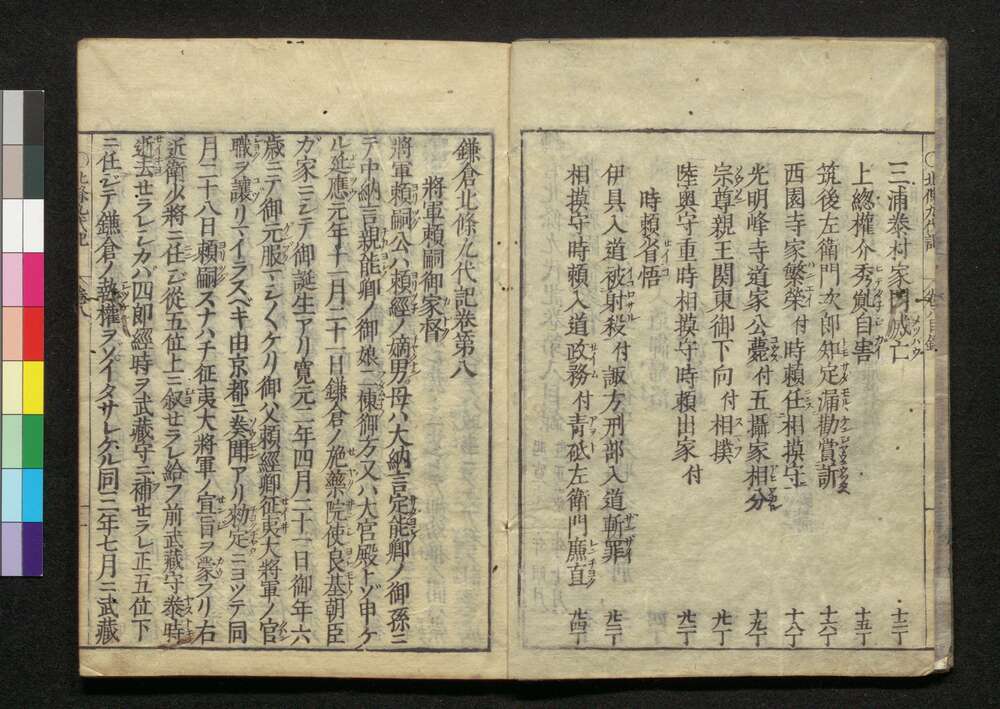 三浦泰村家門滅亡 十二丁
上總權介秀胤自害 十五丁
筑後左衛門次郎知定漏勸賞訴 十六丁
西園寺家繁榮付時頼任相摸守 十八丁
光明峰寺道家公薨付五攝家相分 十九丁
宗尊親王關東御下向付相撲 廿丁
陸奥守重時相摸守時頼出家付 廿二丁
時頼省悟
伊具入道被射殺付諏方刑部入道斬罪 廿三丁
相摸守時頼入道政務付青砥左衛門廉直 廿四丁
鎌倉北條九代記卷第八
將軍頼嗣御家督
將軍頼嗣公ハ頼經ノ嫡男母ハ大納言定能卿ノ御孫ニ
テ中納言親能卿ノ御娘二棟御方又ハ大宮殿トゾ申ケ
ル延應元年十一月二十一日鎌倉ノ施藥院使良基朝臣
ガ家ニシテ御誕生アリ寛元二年四月二十一日御年六
歳ニテ御元服マシ〱ケリ御父頼經卿征夷大將軍ノ官
職ヲ讓リマイラスベキ由京都ニ奏聞アリ勅定ニヨツテ同
月二十八日頼嗣スナハチ征夷大將軍ノ宣旨ヲ蒙フリ右
近衛少將ニ任ジ從五位上ニ叙セラレ給フ前武藏守泰時
逝去セラレシカバ四郎經時ヲ武藏守ニ補せラレ正五位下
ニ任ジテ鎌倉ノ執權ヲゾイタサレケル同三年七月ニ武藏